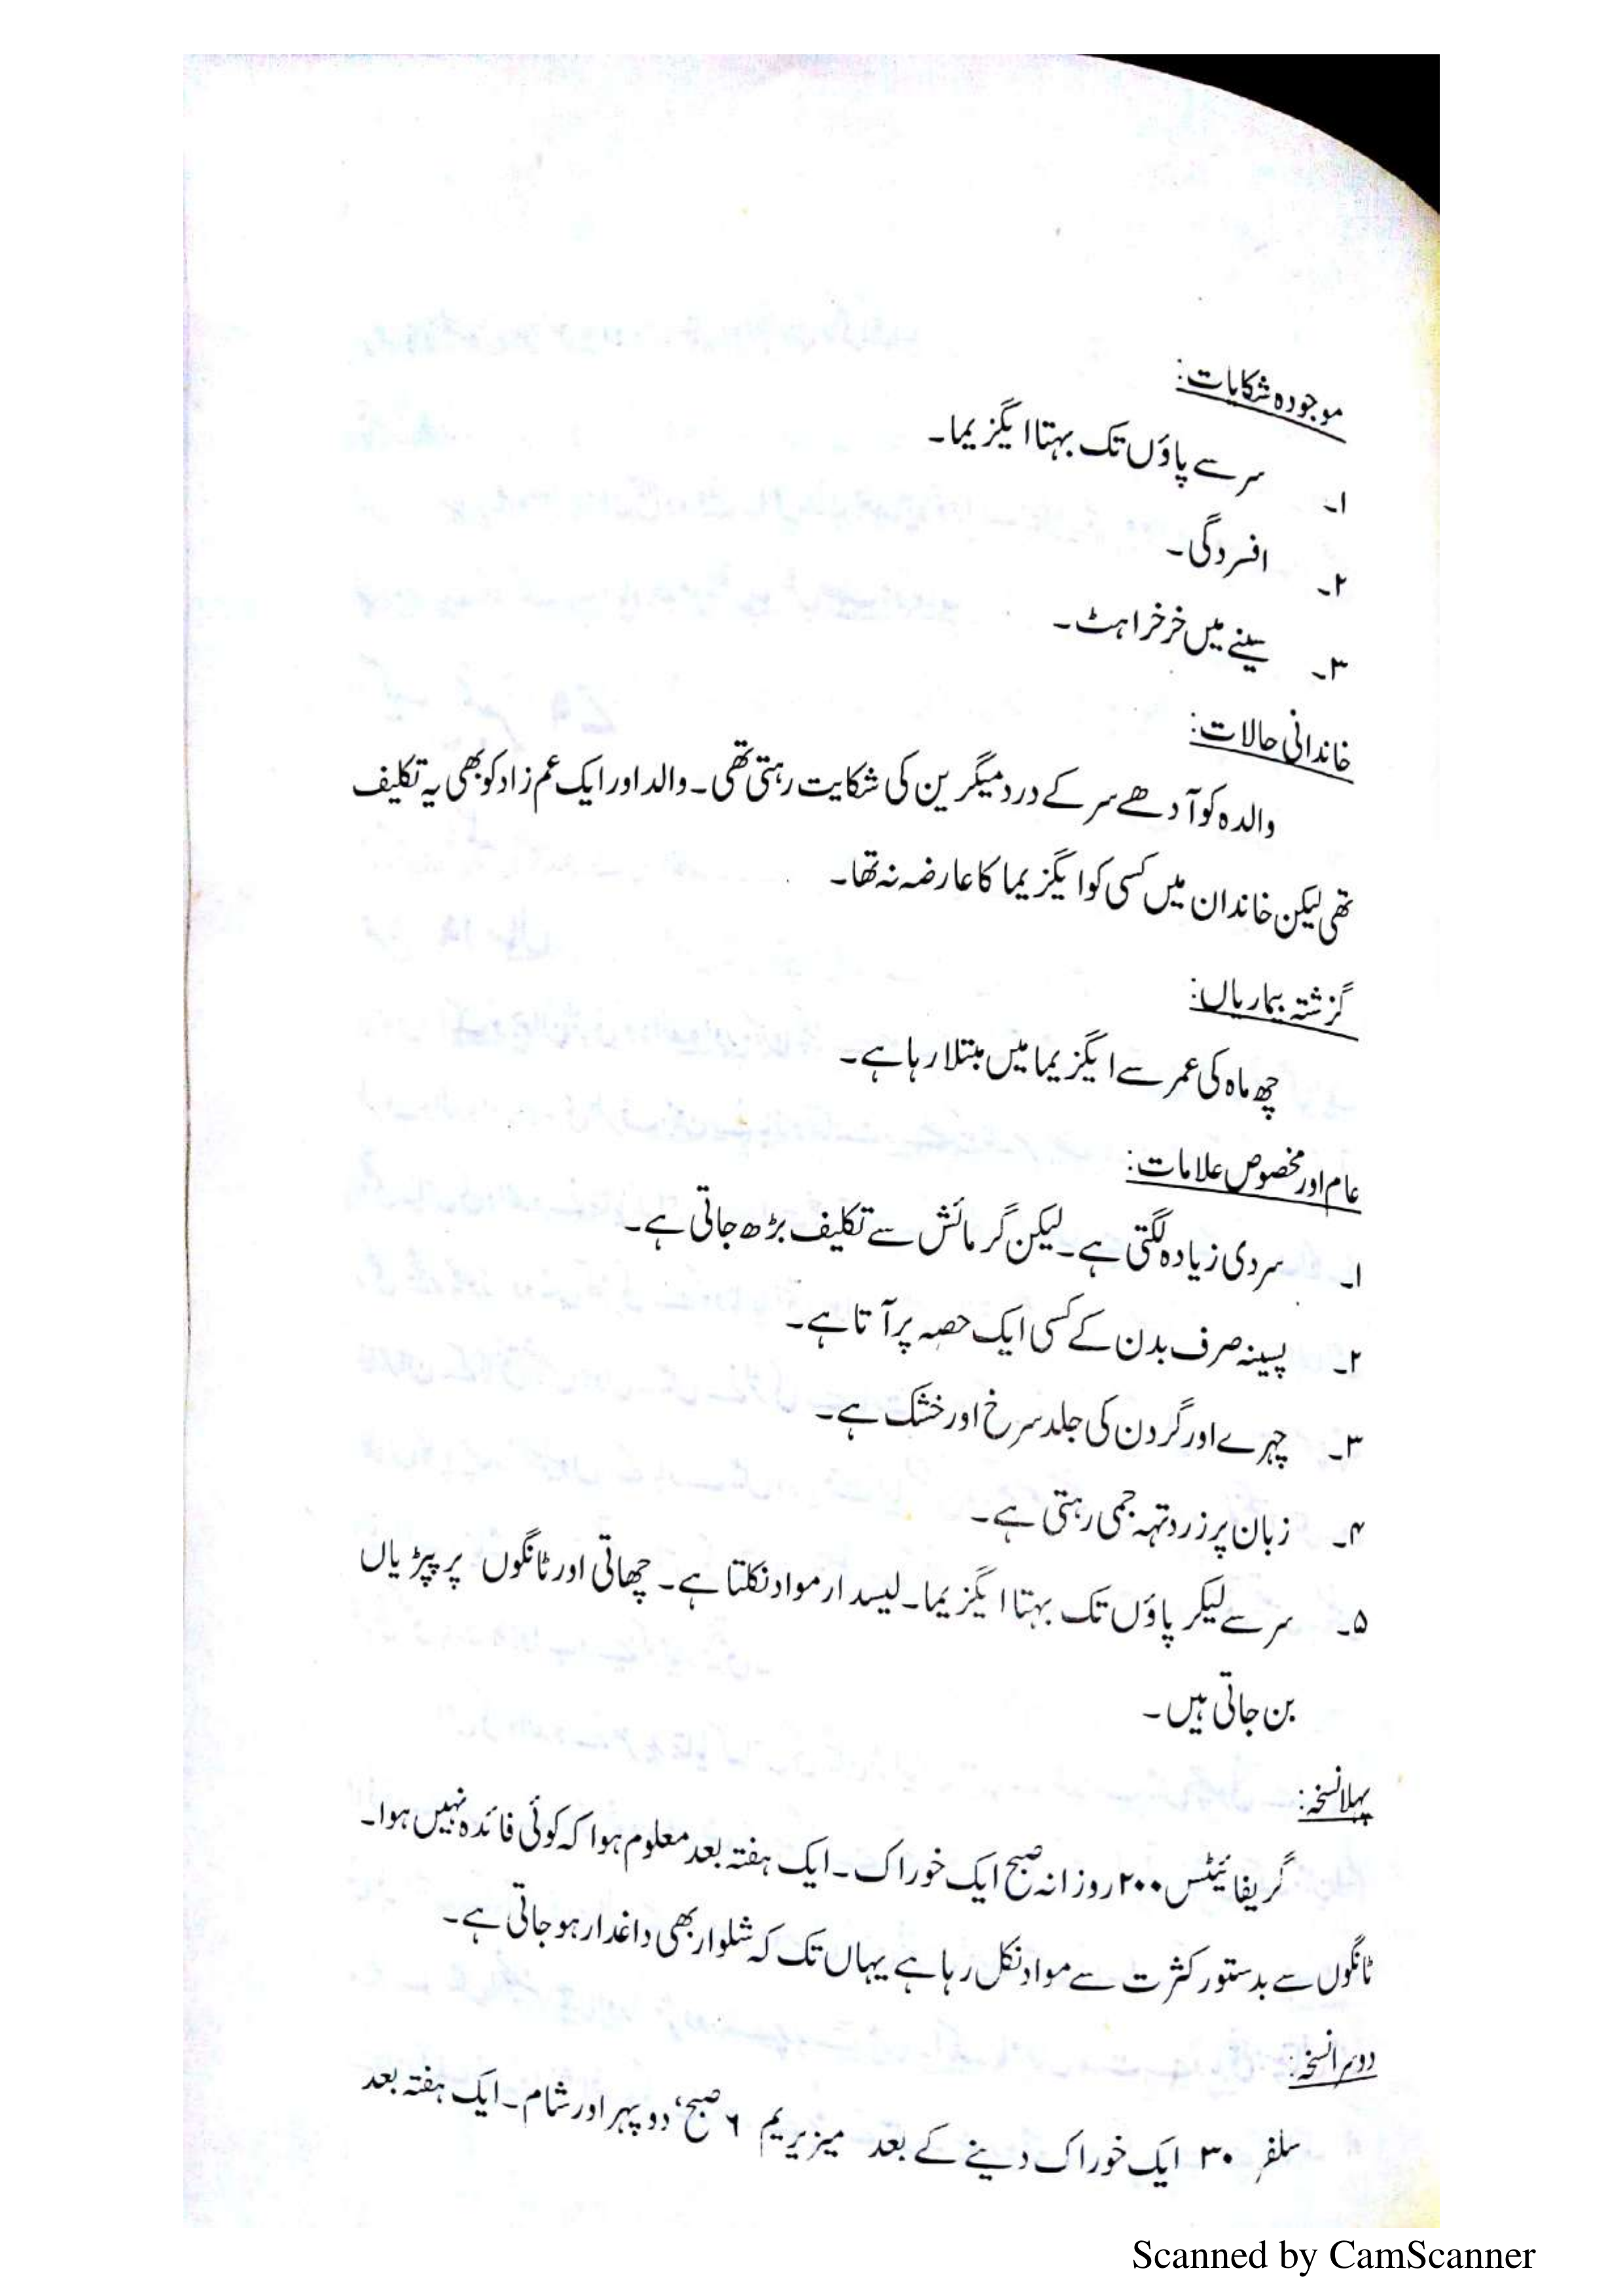 موجودہ شکایات:
۱۔ سر سے پاؤں تک بہتا ایگزیما۔
۲۔ افسردگی۔
۳۔ سینے میں خرخراہٹ۔
خاندانی حالات:
والدہ کو آدھے سر کے درد میگرین کی شکایت رہتی تھی۔ والد اور ایک عم زاد کو بھی یہ تکلیف
تھی لیکن خاندان میں کسی کو ایگزیما کا عارضہ نہ تھا۔
گزشتہ بیماریاں:
چھ ماہ کی عمر سے ایگزیما میں مبتلا رہا ہے۔
عام اور مخصوص علامات:
۱۔ سردی زیادہ لگتی ہے۔ لیکن گرمائش سے تکلیف بڑھ جاتی ہے۔
۲۔ پسینہ صرف بدن کے کسی ایک حصہ پر آتا ہے۔
۳۔ چہرے اور گردن کی جلد سرخ اور خشک ہے۔
۴۔ زبان پر زرد تہہ جمی رہتی ہے۔
۵۔ سر سے لیکر پاؤں تک بہتا ایگزیما۔ لیسدار مواد نکلتا ہے۔ چھاتی اور ٹانگوں پر پپڑیاں
بن جاتی ہیں۔
پہلا نسخہ:
گریفائیٹس ۲۰۰ روزانہ صبح ایک خوراک۔ ایک ہفتہ بعد معلوم ہوا کہ کوئی فائدہ نہیں ہوا۔
ٹانگوں سے بدستور کثرت سے مواد نکل رہا ہے یہاں تک کہ شلوار بھی داغدار ہو جاتی ہے۔
دوسرا نسخہ:
سلفر ۳۰ ایک خوراک دینے کے بعد میزیریم ۶ صبح، دوپہر اور شام۔ ایک ہفتہ بعد
Scanned by CamScanner